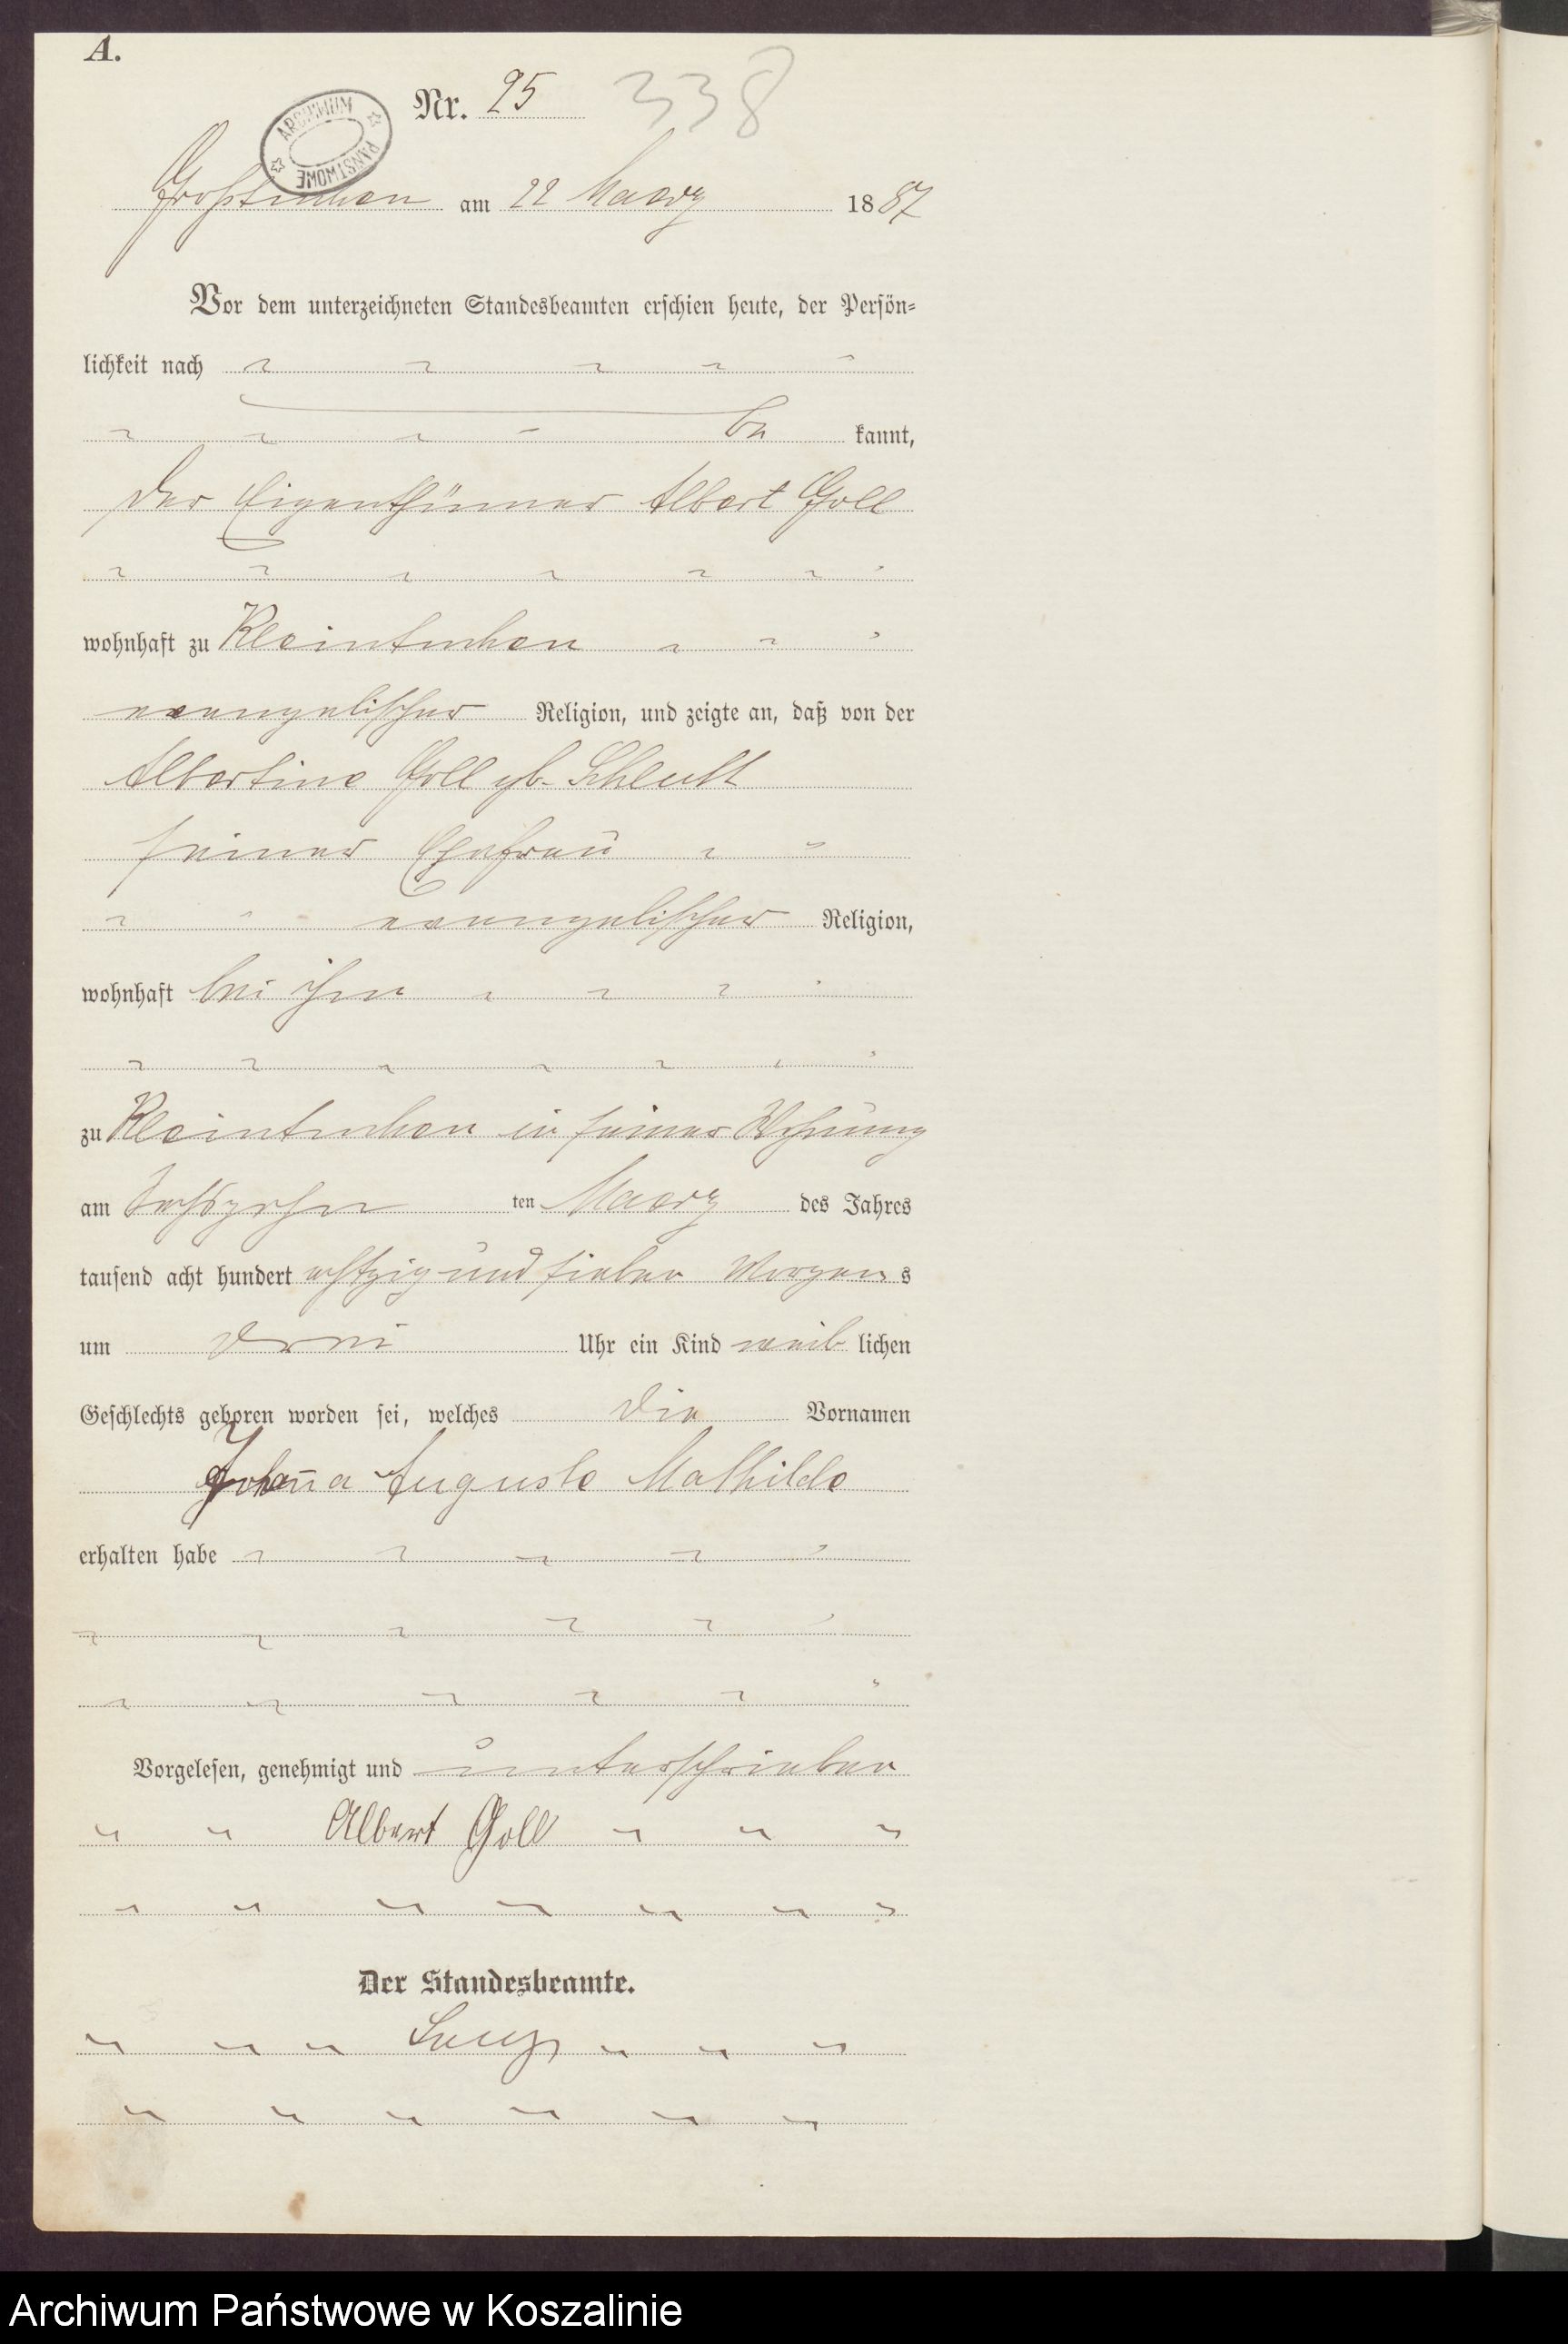 A.
Nr. 25 338
ARCHIWUM PAŃSTWOWE
Großtuchen am 22 Maerz 1887
Vor dem unterzeichneten Standesbeamten erschien heute, der Persön=
lichkeit nach
be kannt,
der Eigenthümer Albert Goll
wohnhaft zu Kleintuchen
evangelischer Religion, und zeigte an, daß von der
Albertine Goll gb. Schlutt
seiner Ehefrau
evangelischer Religion,
wohnhaft bei ihm
zu Kleintuchen in seiner Wohnung
am sechszehn ten Maerz des Jahres
tausend acht hundert achtzig und sieben Morgens
um drei Uhr ein Kind weib lichen
Geschlechts geboren worden sei, welches die Vornamen
Johanna Auguste Mathilde
erhalten habe
Vorgelesen, genehmigt und unterschrieben
Albert Goll
Der Standesbeamte.
Archiwum Państwowe w Koszalinie